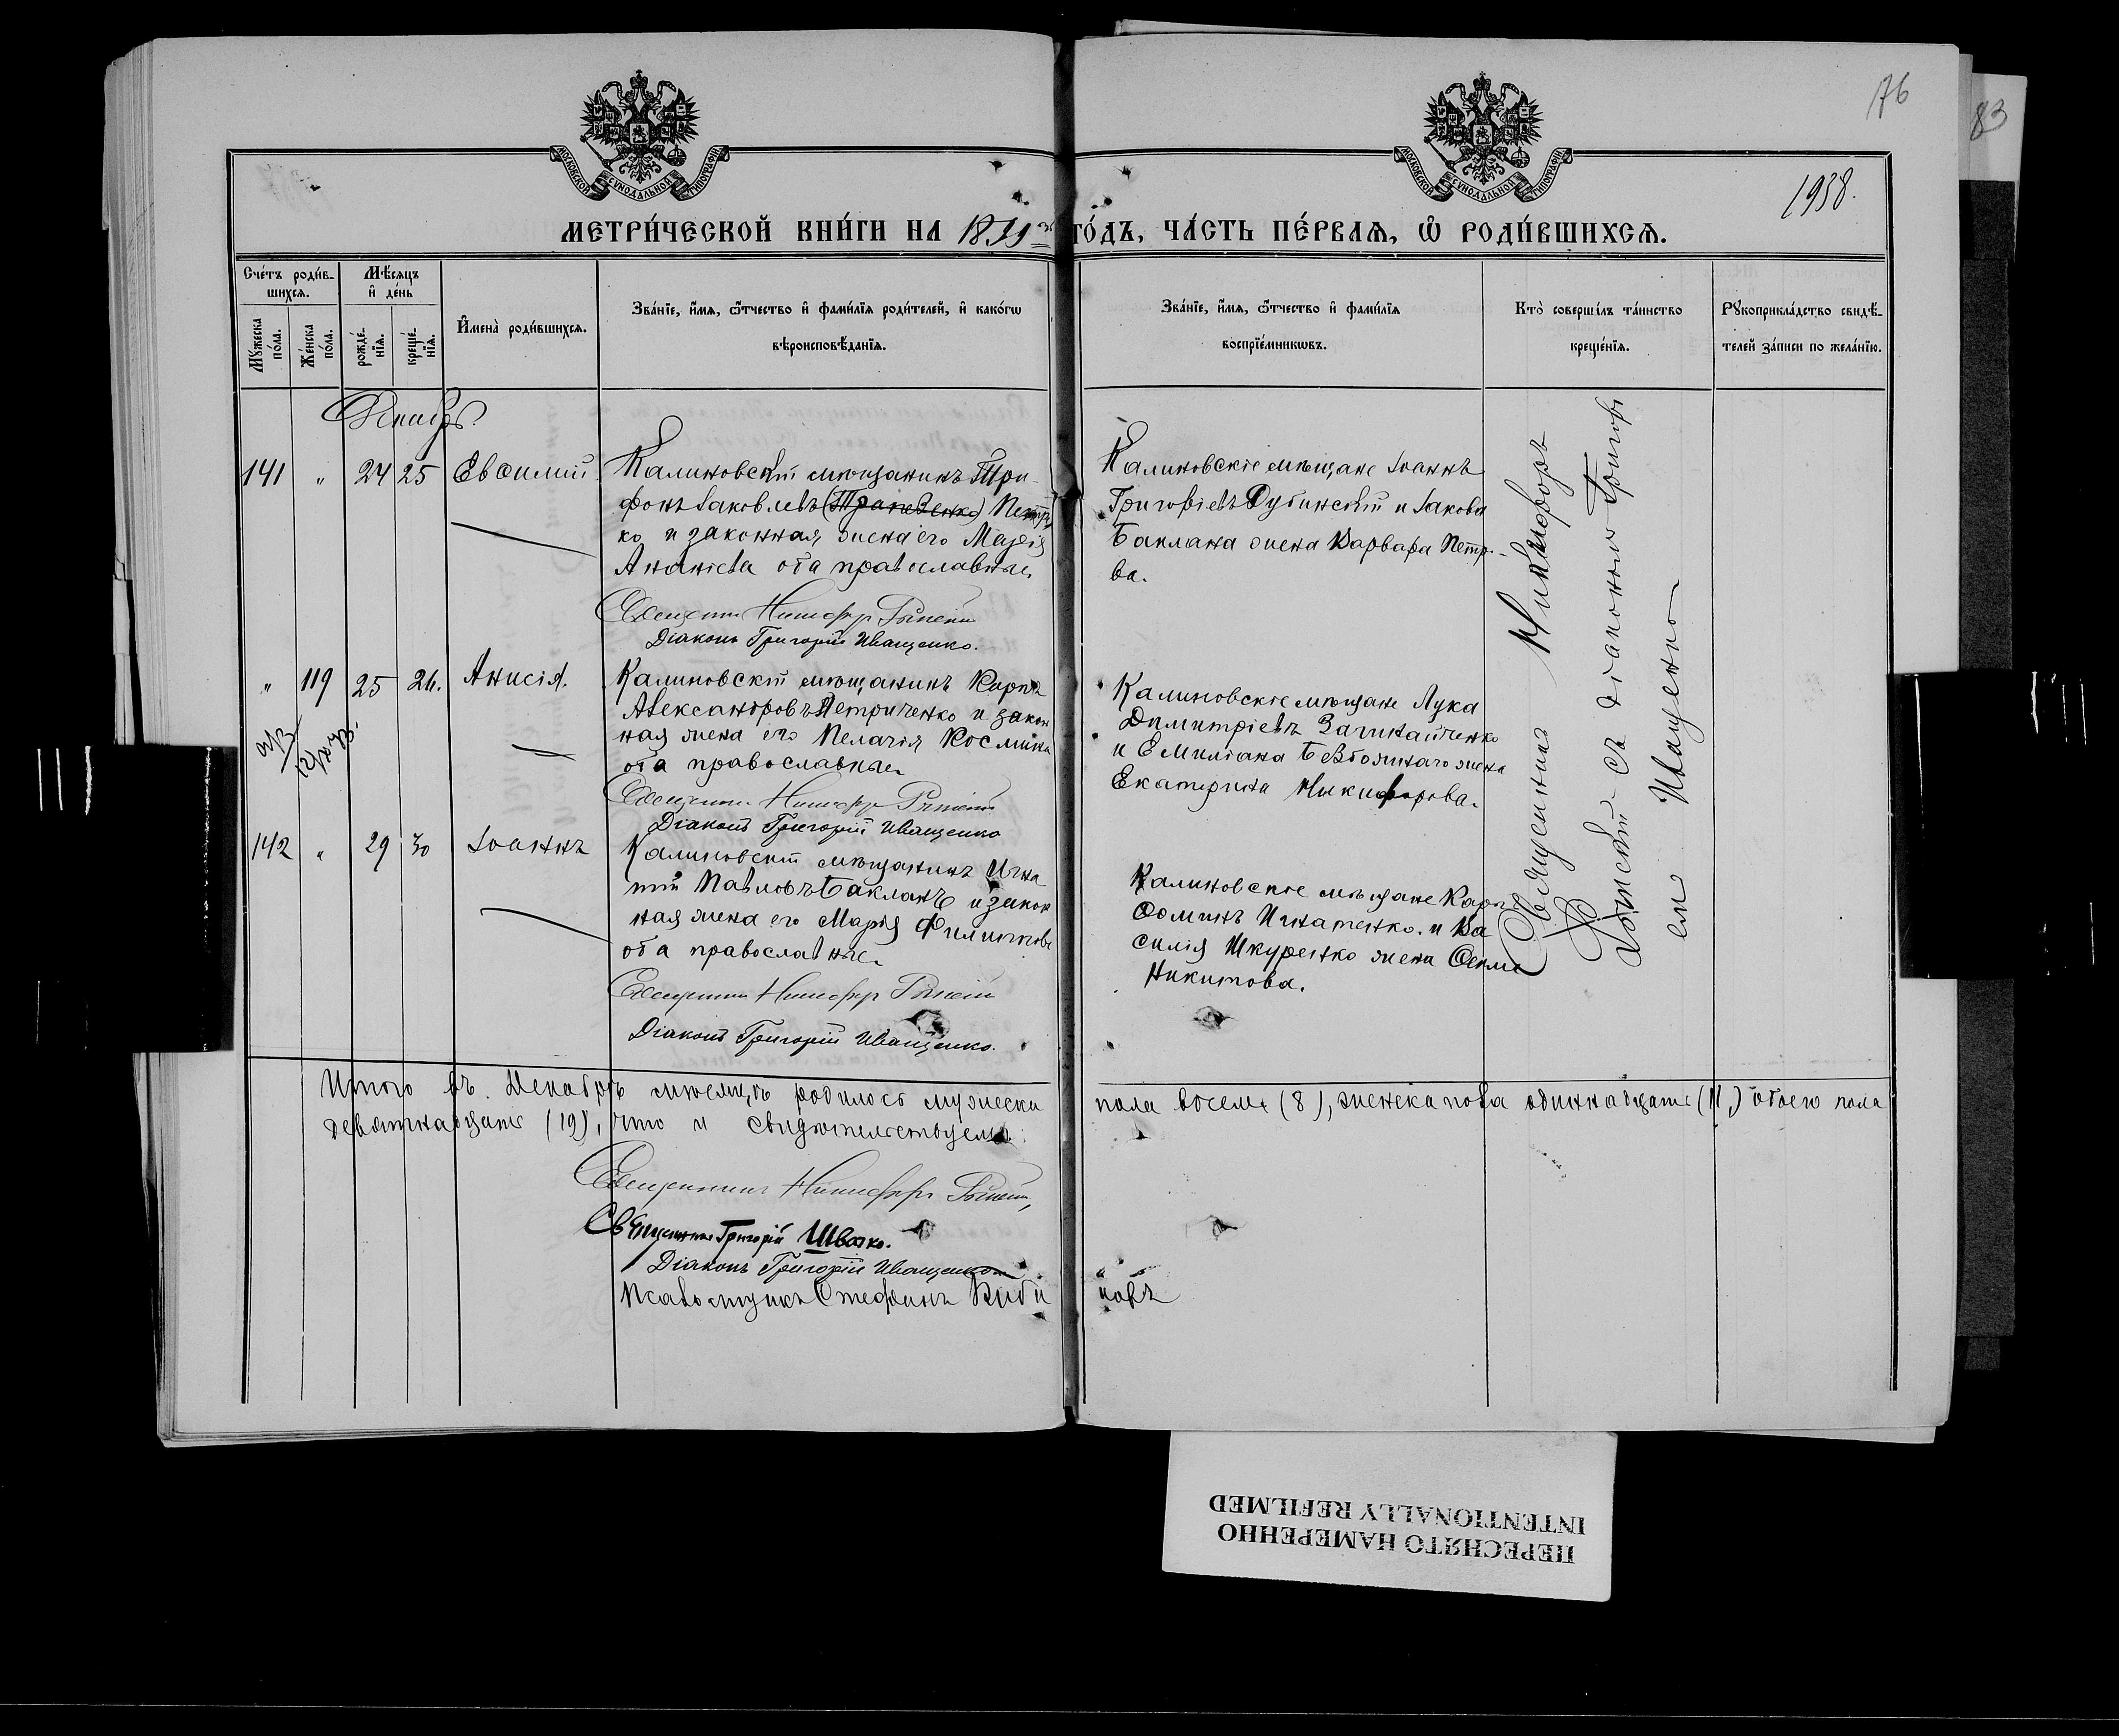 76
83
МОСКОВСКОЙ СѴНОДАЛЬНОЙ ТИПОГРАФІИ
МОСКОВСКОЙ СѴНОДАЛЬНОЙ ТИПОГРАФІИ
1938.
МЕТРИ́ЧЕСКОЙ КНИ́ГИ НА 1879й ГО́ДЪ, ЧА́СТЬ ПЕ́РВАѦ, Ѽ РОДИ́ВШИХСѦ.
Сче́тъ роди́в-
шихсѧ.
Мꙋжеска по́ла.
Же́нска по́ла.
Мѣ́сѧцъ
и҆ де́нь
рожде́-
нїѧ.
креще́-
нїѧ.
И҆мена̀ роди́вшихсѧ.
Зва́нїе, и҆́мѧ, ѻ҆́тчество и҆ фами́лїѧ роди́телей, и҆ како́гѡ
вѣроисповѣ́данїѧ.
Зва́нїе, и҆́мѧ, ѻ҆́тчество и҆ фами́лїѧ
воспрїе́мникѡвъ.
Кто̀ соверши́лъ та́инство
креще́нїѧ.
Рꙋкоприкла́дство свидѣ́-
телей за́писи по жела́нїю.
Декабрь
141 " 24 25 Евѳимій
Калиновскій мѣщанинъ Три-
фонъ Іаковлевъ (Трапезенко) Петр
ко и законная жена его Марія
Ананіева оба православные
Священникъ Никифоръ
Діаконъ Григорій Иващенко.
Калиновскіе мѣщане Іоаннъ
Григоріевъ Дубинскій и Іакова
Баклана жена Варвара Петро-
ва.
" 119 25 26. Анисія.
Калиновскій мѣщанинъ Карпъ
Александровъ Петриченко и закон
ная жена его Пелагія Космина
оба православные
Священникъ Никифоръ
Діаконъ Григорій Иващенко
Калиновскіе мѣщане Лука
Димитріевъ
и Емиліана жена
Екатерина Никифорова.
142 " 29 30 Іоаннъ
Калиновскій мѣщанинъ Игна
тій Павловъ Бакланъ и закон
ная жена его Марія Филиппова
оба православные
Священникъ Никифоръ
Діаконъ Григорій Иващенко.
Калиновскіе мѣщане Карпъ
Ѳоминъ Игнатенко и Ва
силія Шкуренко жена
Никитова.
Священникъ Никифоръ
съ діакономъ Григорі
емъ Иващенко
Итого въ Декабрѣ мѣсяцѣ родилось мужеска пола восемь (8), женска пола одиннадцать (11,) обоего пола
девятнадцать (19), что и свидѣтельствуемъ:
Священникъ Никифоръ
Священникъ Григорій Швачко.
Діаконъ Григорій Иващенко
Псаломщикъ Стефанъ
ПЕРЕСНЯТО НАМЕРЕННО
INTENTIONALLY REFILMED